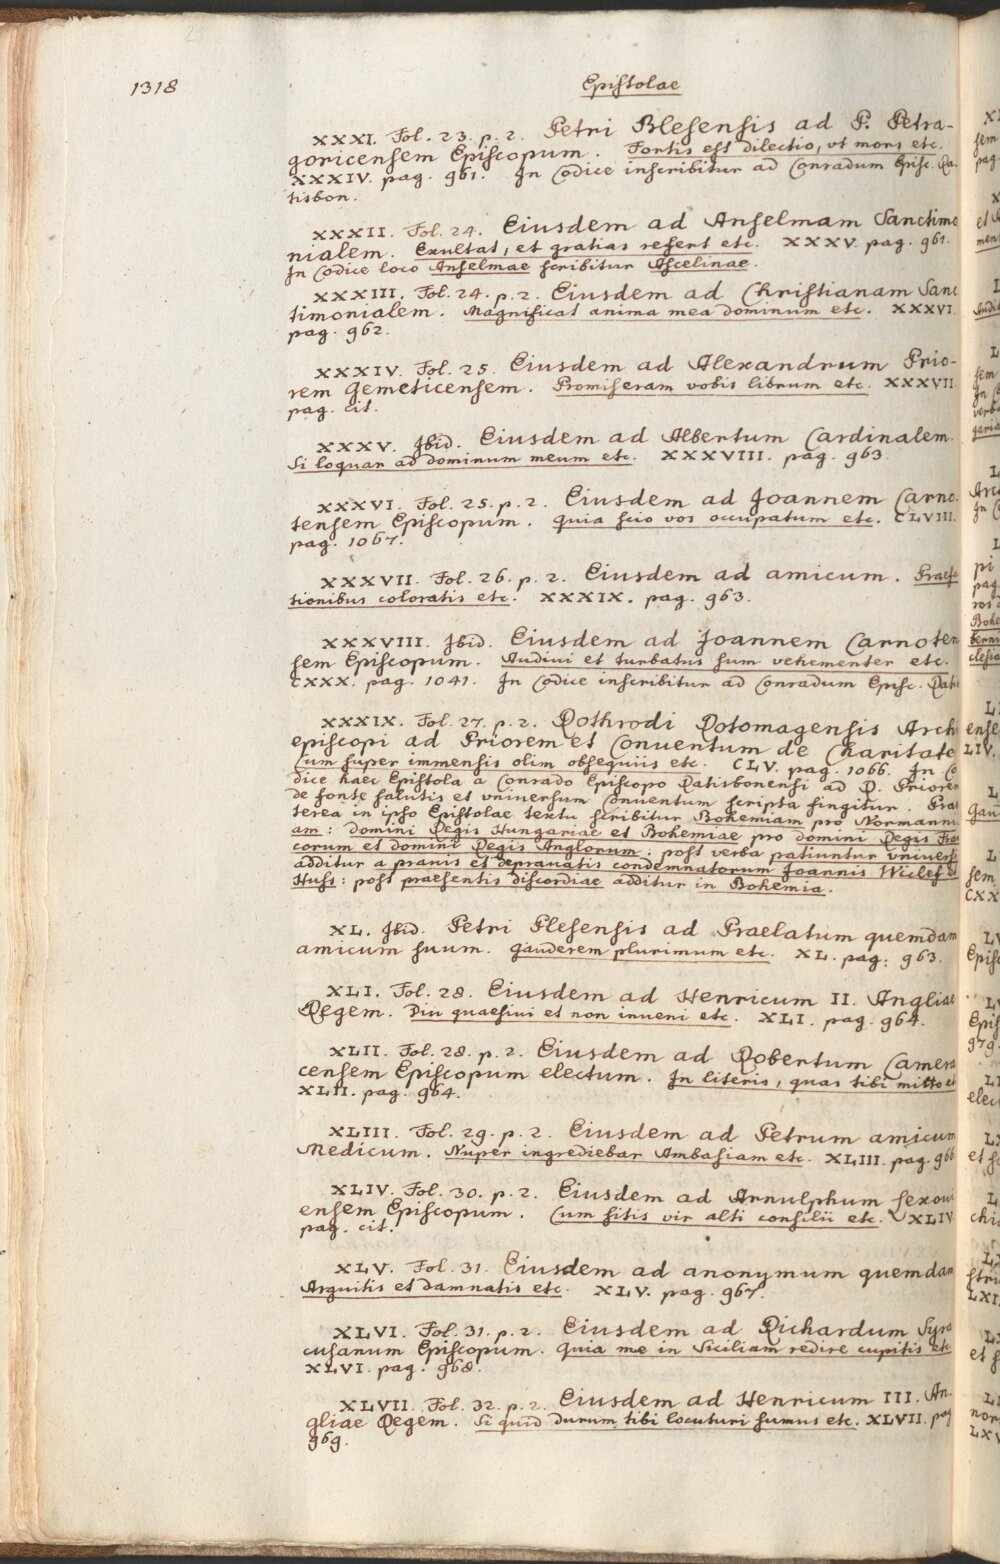 1318
Epistolae
XXXI. Fol. 23. p. 2. Petri Blesensis ad P. Petra-
goricensem Episcopum. Fortis est dilectio, vt mors etc.
XXXIV. pag. 961. In Codice inscribitur ad Conradum Episc. Ra-
tisbon.
XXXII. Fol. 24. Eiusdem ad Anselmam Sanctimo
nialem. Exultat, et gratias refert etc. XXXV. pag. 961.
In Codice loco Anselmae scribitur Ascelinae.
XXXIII. Fol. 24. p. 2. Eiusdem ad Christianam Sanc
timonialem. Magnificat anima mea dominum etc. XXXVI.
pag. 962.
XXXIV. Fol. 25. Eiusdem ad Alexandrum Prio-
rem Gemeticensem. Promiseram vobis librum etc. XXXVII
pag. cit.
XXXV. Ibid. Eiusdem ad Albertum Cardinalem.
Si loquar ad dominum meum etc. XXXVIII. pag. 963.
XXXVI. Fol. 25. p. 2. Eiusdem ad Joannem Carno.
tensem Episcopum. quia scio vos occupatum etc. CLVIII.
pag. 1067.
XXXVII. Fol. 26. p. 2. Eiusdem ad amicum. Praesta
tionibus coloratis etc. XXXIX. pag. 963.
XXXVIII. Ibid. Eiusdem ad Joannem Carnoten
sem Episcopum. Audiui et turbatus sum vehementer etc.
CXXX. pag. 1041. In Codice inscribitur ad Conradum Episc. Ratis
XXXIX. Fol. 27. p. 2. Rothrodi Rotomagensis Arch
episcopi ad Priorem et Conuentum de Charitate
Cum super immensis olim obsequiis etc. CLV. pag. 1066. In Co
dice haec Epistola a Conrado Episcopo Ratisbonensi ad R. Priorem
de fonte salutis et vniuersum Conuentum scripta fingitur. Prae
terea in ipso Epistolae textu scribitur Bohemiam pro Normanni
am: domini Regis Hungariae et Bohemiae pro domini Regis Fran
corum et domini Regis Anglorum: post verba patiuntur vniuersi
additur a prauis et deprauatis condemnatorum Joannis Wiclef et
Huss: post praesentis discordiae additur in Bohemia.
XL. Ibid. Petri Plesensis ad Praelatum quemdam
amicum suum. gauderem plurimum etc. XL. pag: 963.
XLI. Fol. 28. Eiusdem ad Henricum II. Angliae
Regem. Diu quaesiui et non inueni etc. XLI. pag. 964.
XLII. Fol. 28. p. 2. Eiusdem ad Robertum Camera
censem Episcopum electum. In literis, quas tibi mitto et
XLII. pag. 964.
XLIII. Fol. 29. p. 2. Eiusdem ad Petrum amicum
Medicum. Nuper ingrediebar Ambasiam etc. XLIII. pag. 966
XLIV. Fol. 30. p. 2. Eiusdem ad Arnulphum Lexoui
ensem Episcopum. Cum sitis vir alti consilii etc. XLIV.
pag. cit.
XLV. Fol. 31. Eiusdem ad anonymum quemdam
Arguitis et damnatis etc. XLV. pag. 967.
XLVI. Fol. 31. p. 2. Eiusdem ad Richardum Syra
cusanum Episcopum. quia me in Siciliam redire cupitis etc
XLVI. pag. 968.
XLVII. Fol. 32. p. 2. Eiusdem ad Henricum III. An.
gliae Regem. Si quid durum tibi locuturi sumus etc. XLVII. pag
969.